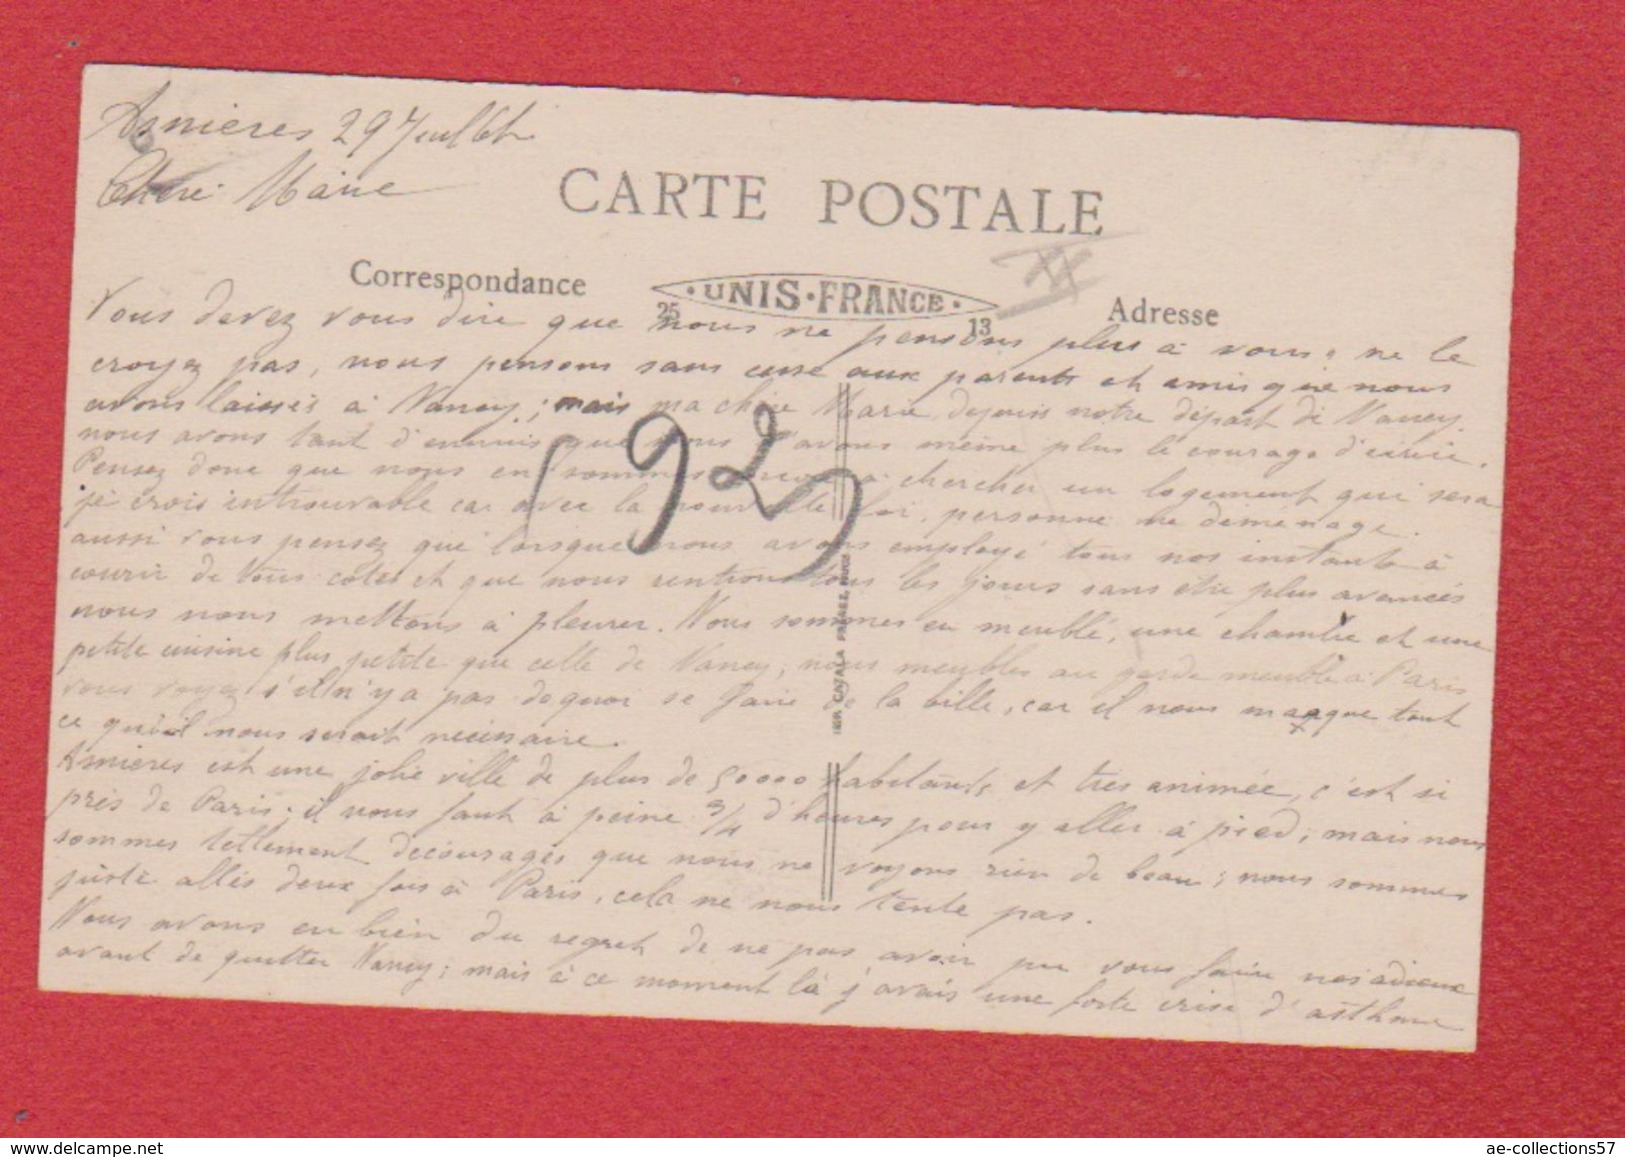 Asnières 29 Juillet
Chère Marie
CARTE POSTALE
Correspondance
UNIS-FRANCE
25
13
Adresse
Vous devez vous dire que nous ne pensons plus à vous, ne le
croyez pas, nous pensons sans cesse aux parents et amis que nous
avons laissés à Nancy; mais ma chère Marie, depuis notre départ de Nancy,
nous avons tant d'ennuis que nous n'avons même plus le courage d'écrire.
Pensez donc que nous en sommes à chercher un logement qui sera
je crois introuvable car avec la nouvelle loi, personne ne déménage.
aussi vous pensez que lorsque nous avons employé tous nos instants à
courir de tous côtés et que nous rentrons tous les jours sans être plus avancés
nous nous mettons à pleurer. Nous sommes en meublé, une chambre et une
petite cuisine plus petite que celle de Nancy; nous meubles au garde meuble à Paris
vous voyez s'il n'y a pas de quoi se faire de la bille, car il nous manque tout
ce qu'il nous serait nécessaire.
Asnières est une jolie ville de plus de 50000 habitants et très animée, c'est si
près de Paris; il nous faut à peine 3/4 d'heures pour y aller à pied; mais nous
sommes tellement découragés que nous ne voyons rien de beau; nous sommes
juste allés deux fois à Paris, cela ne nous tente pas.
Nous avons eu bien du regret de ne pas avoir pu vous faire nos adieux
avant de quitter Nancy; mais à ce moment là j'avais une forte crise d'asthme
192
IMP. CATALA FRERES, PARIS
www.delcampe.net
ae-collections57